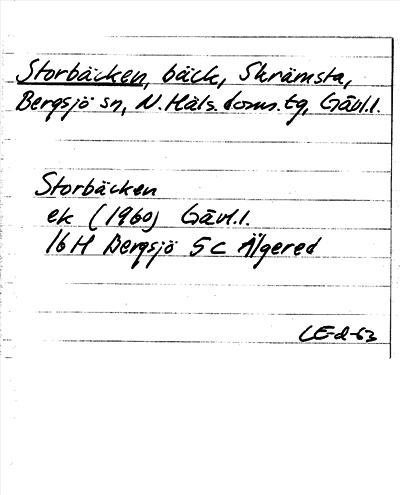 Storbäcken, bäck, Skrämsta,
Bergsjö sn, N. Häls. doms. tg, Gävl.l.
Storbäcken
ek (1960) Gävl.l.
16 H Bergsjö 5 c Älgered
LE-d-63